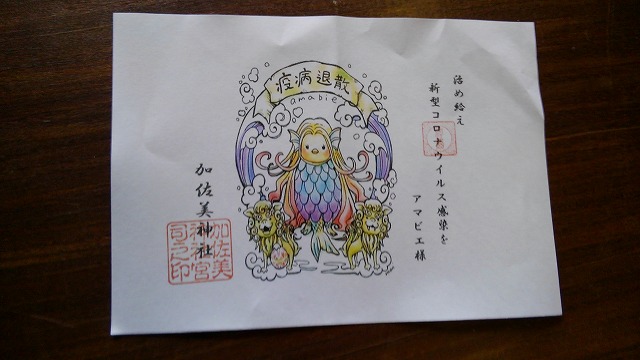 治め給え
新型コロナウイルス感染を
アマビエ様
疫病退散
amabie
加佐美神社
加佐美
神社宮
司之印